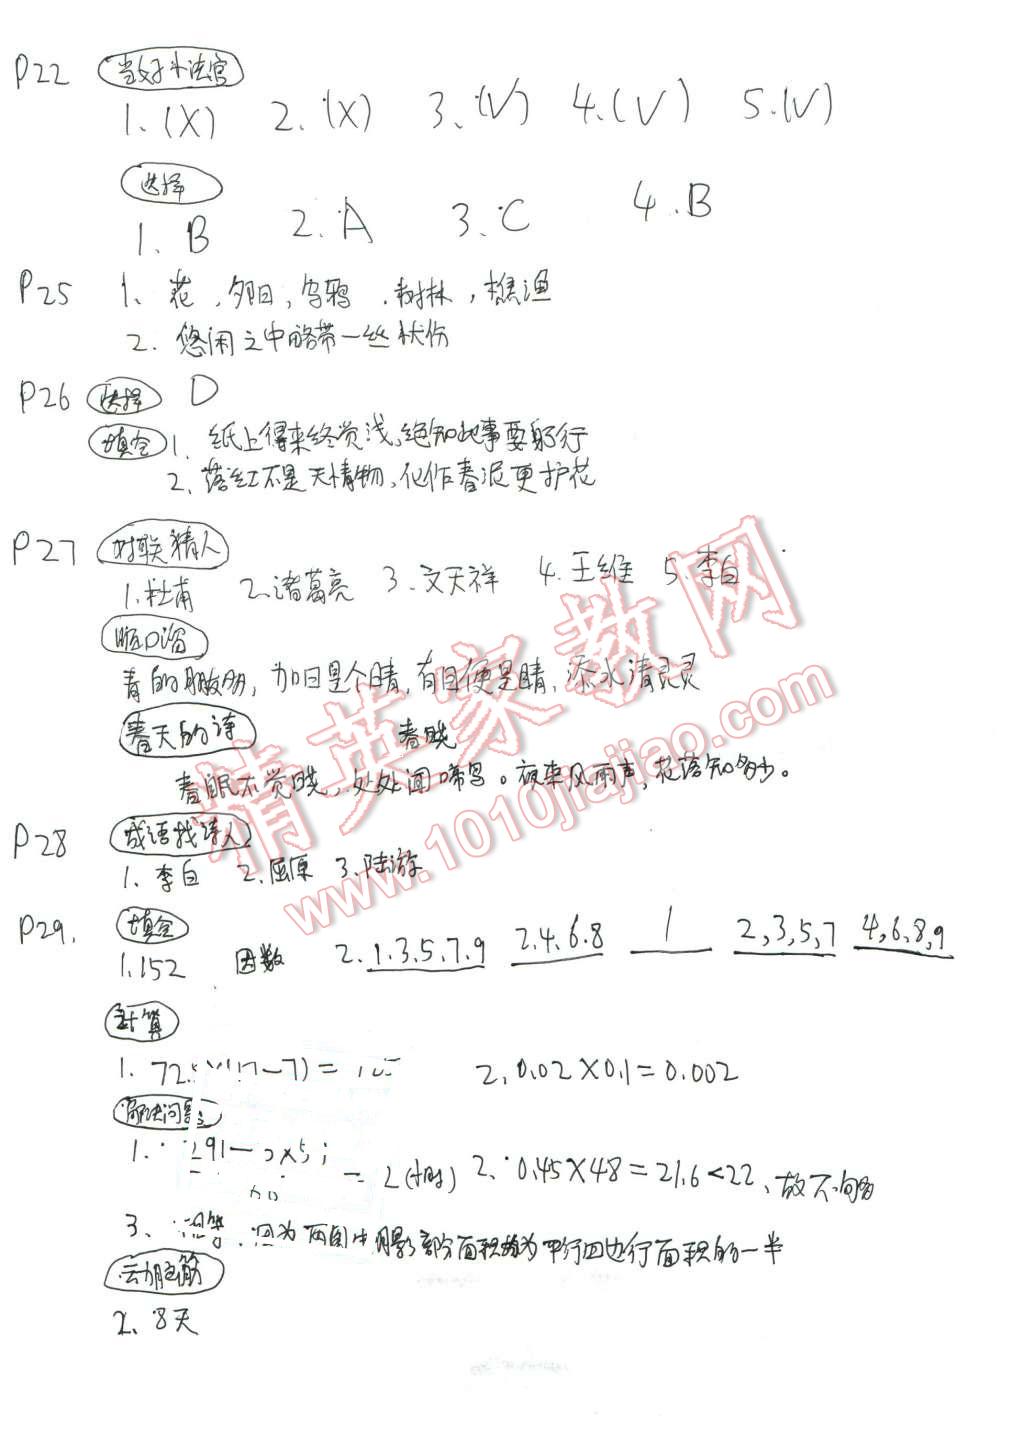 P22 当好小法官
1.(X) 2.(X) 3.(V) 4.(V) 5.(V)
选择
1. B 2. A 3. C 4. B
P25 1. 花,夕日,乌鸦,树林,樵渔
2. 悠闲之中略带一丝忧伤
P26 选择 D
填空 1. 纸上得来终觉浅,绝知此事要躬行
2. 落红不是无情物,化作春泥更护花
P27 对联猜人
1. 杜甫 2. 诸葛亮 3. 文天祥 4. 王维 5. 李白
顺口溜
青的朋友多,加日是个晴,有目便是睛,添水清灵灵
春天的诗 春晓
春眠不觉晓,处处闻啼鸟。夜来风雨声,花落知多少。
P28 成语找诗人
1. 李白 2. 屈原 3. 陆游
P29. 填空
1. 152 因数 2. 1.3.5.7.9 2.4.6.8 1 2,3,5,7 4,6,8,9
计算
1. 72. 7) = 2. 0.02×0.1=0.002
解决问题
1. 291- = 2(小时) 2. 0.45×48=21.6<22, 故不够
3. 因为两图中阴影部分面积均为平行四边行面积的一半
动脑筋
2. 8天
精英家教网
www.1010jiajiao.com